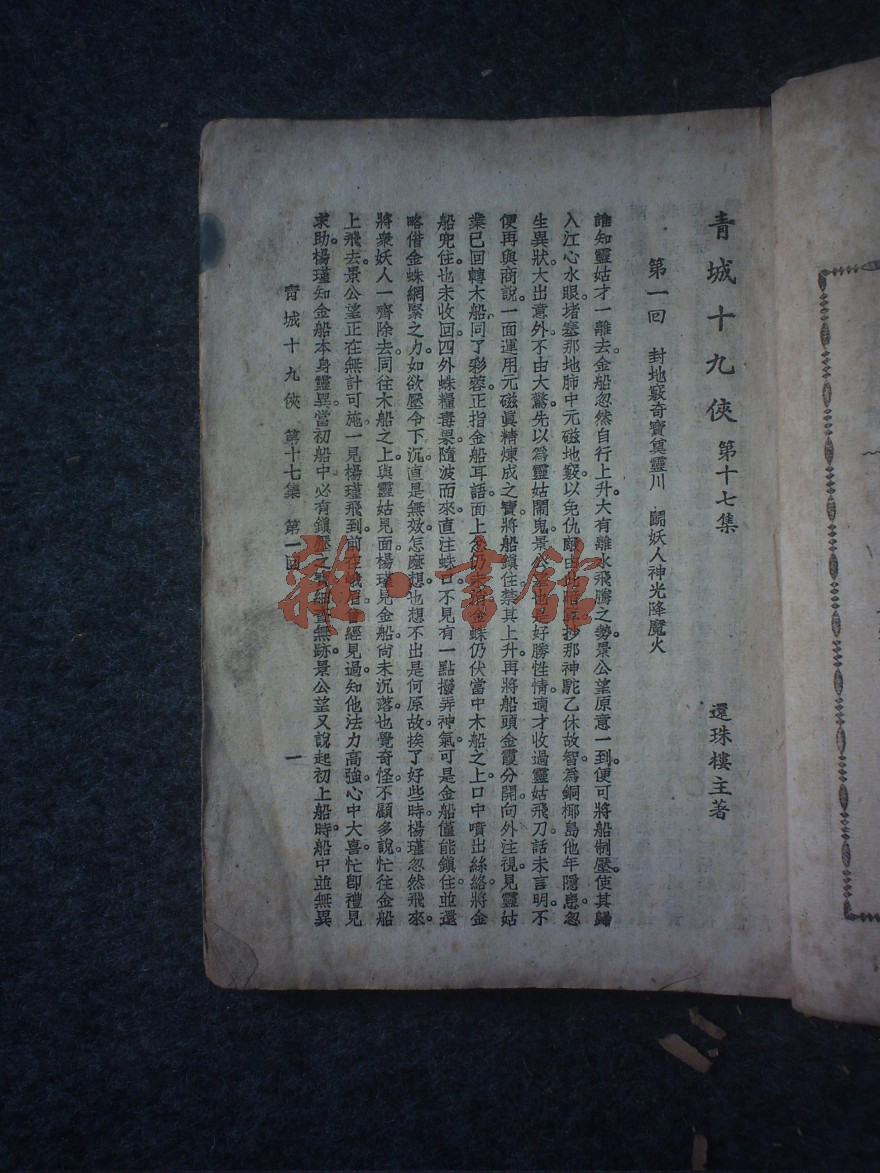 青城十九俠 第十七集
還珠樓主著
第一回 封地竅奇寶奠靈川 鬭妖人神光降魔火
誰知靈姑才一離去。金船忽然自行上升。大有離水飛騰之勢。景公望原意一到。便可將船制壓。使其歸
入江心水眼。堵塞那地肺中元磁地竅。以免仇敵由此暗
抄那神駝乙休故智。為銅椰島他年隱患。忽
生異狀。大出意外。不由大驚。先以為靈姑鬧鬼。景公望也是好勝性情。適才收過靈姑飛刀。話未言明。不
便再與商說。一面運用元磁眞精煉成之寶。將船鎮住。禁其上升。再將船頭金霞分開。向外注視。見靈姑
業已回轉木船。同了彩蓉。正指金船耳語。面上
金蛛仍伏當中木船之上。口中噴出絲絡。將金
船兜住。也未收回。四外蛛糧毒果隨波而來。直注蛛口。不見有一點撥弄神氣。可是金船僅能鎮住。並還
略借金蛛網緊之力。如欲壓令下沉。直是無效。怎麼想也想不出是何原故。挨了好些時。楊瑾忽然飛來。
將衆妖人一齊除去。同往木船之上。與靈姑見面。楊瑾見金船尙未沉落。也覺奇怪。不顧多說。忙往金船
上飛去。景公望正在無計可施。一見楊瑾飛到。前在峨眉曾經見過。知他法力高強。心中大喜。忙卽禮見
求助。楊瑾知金船本身靈異。當初船中必有鎮壓之寶。
無跡。景公望又說起初上船時。船中並無異
靑城十九俠 第十七集 第一回 一
雜·書館